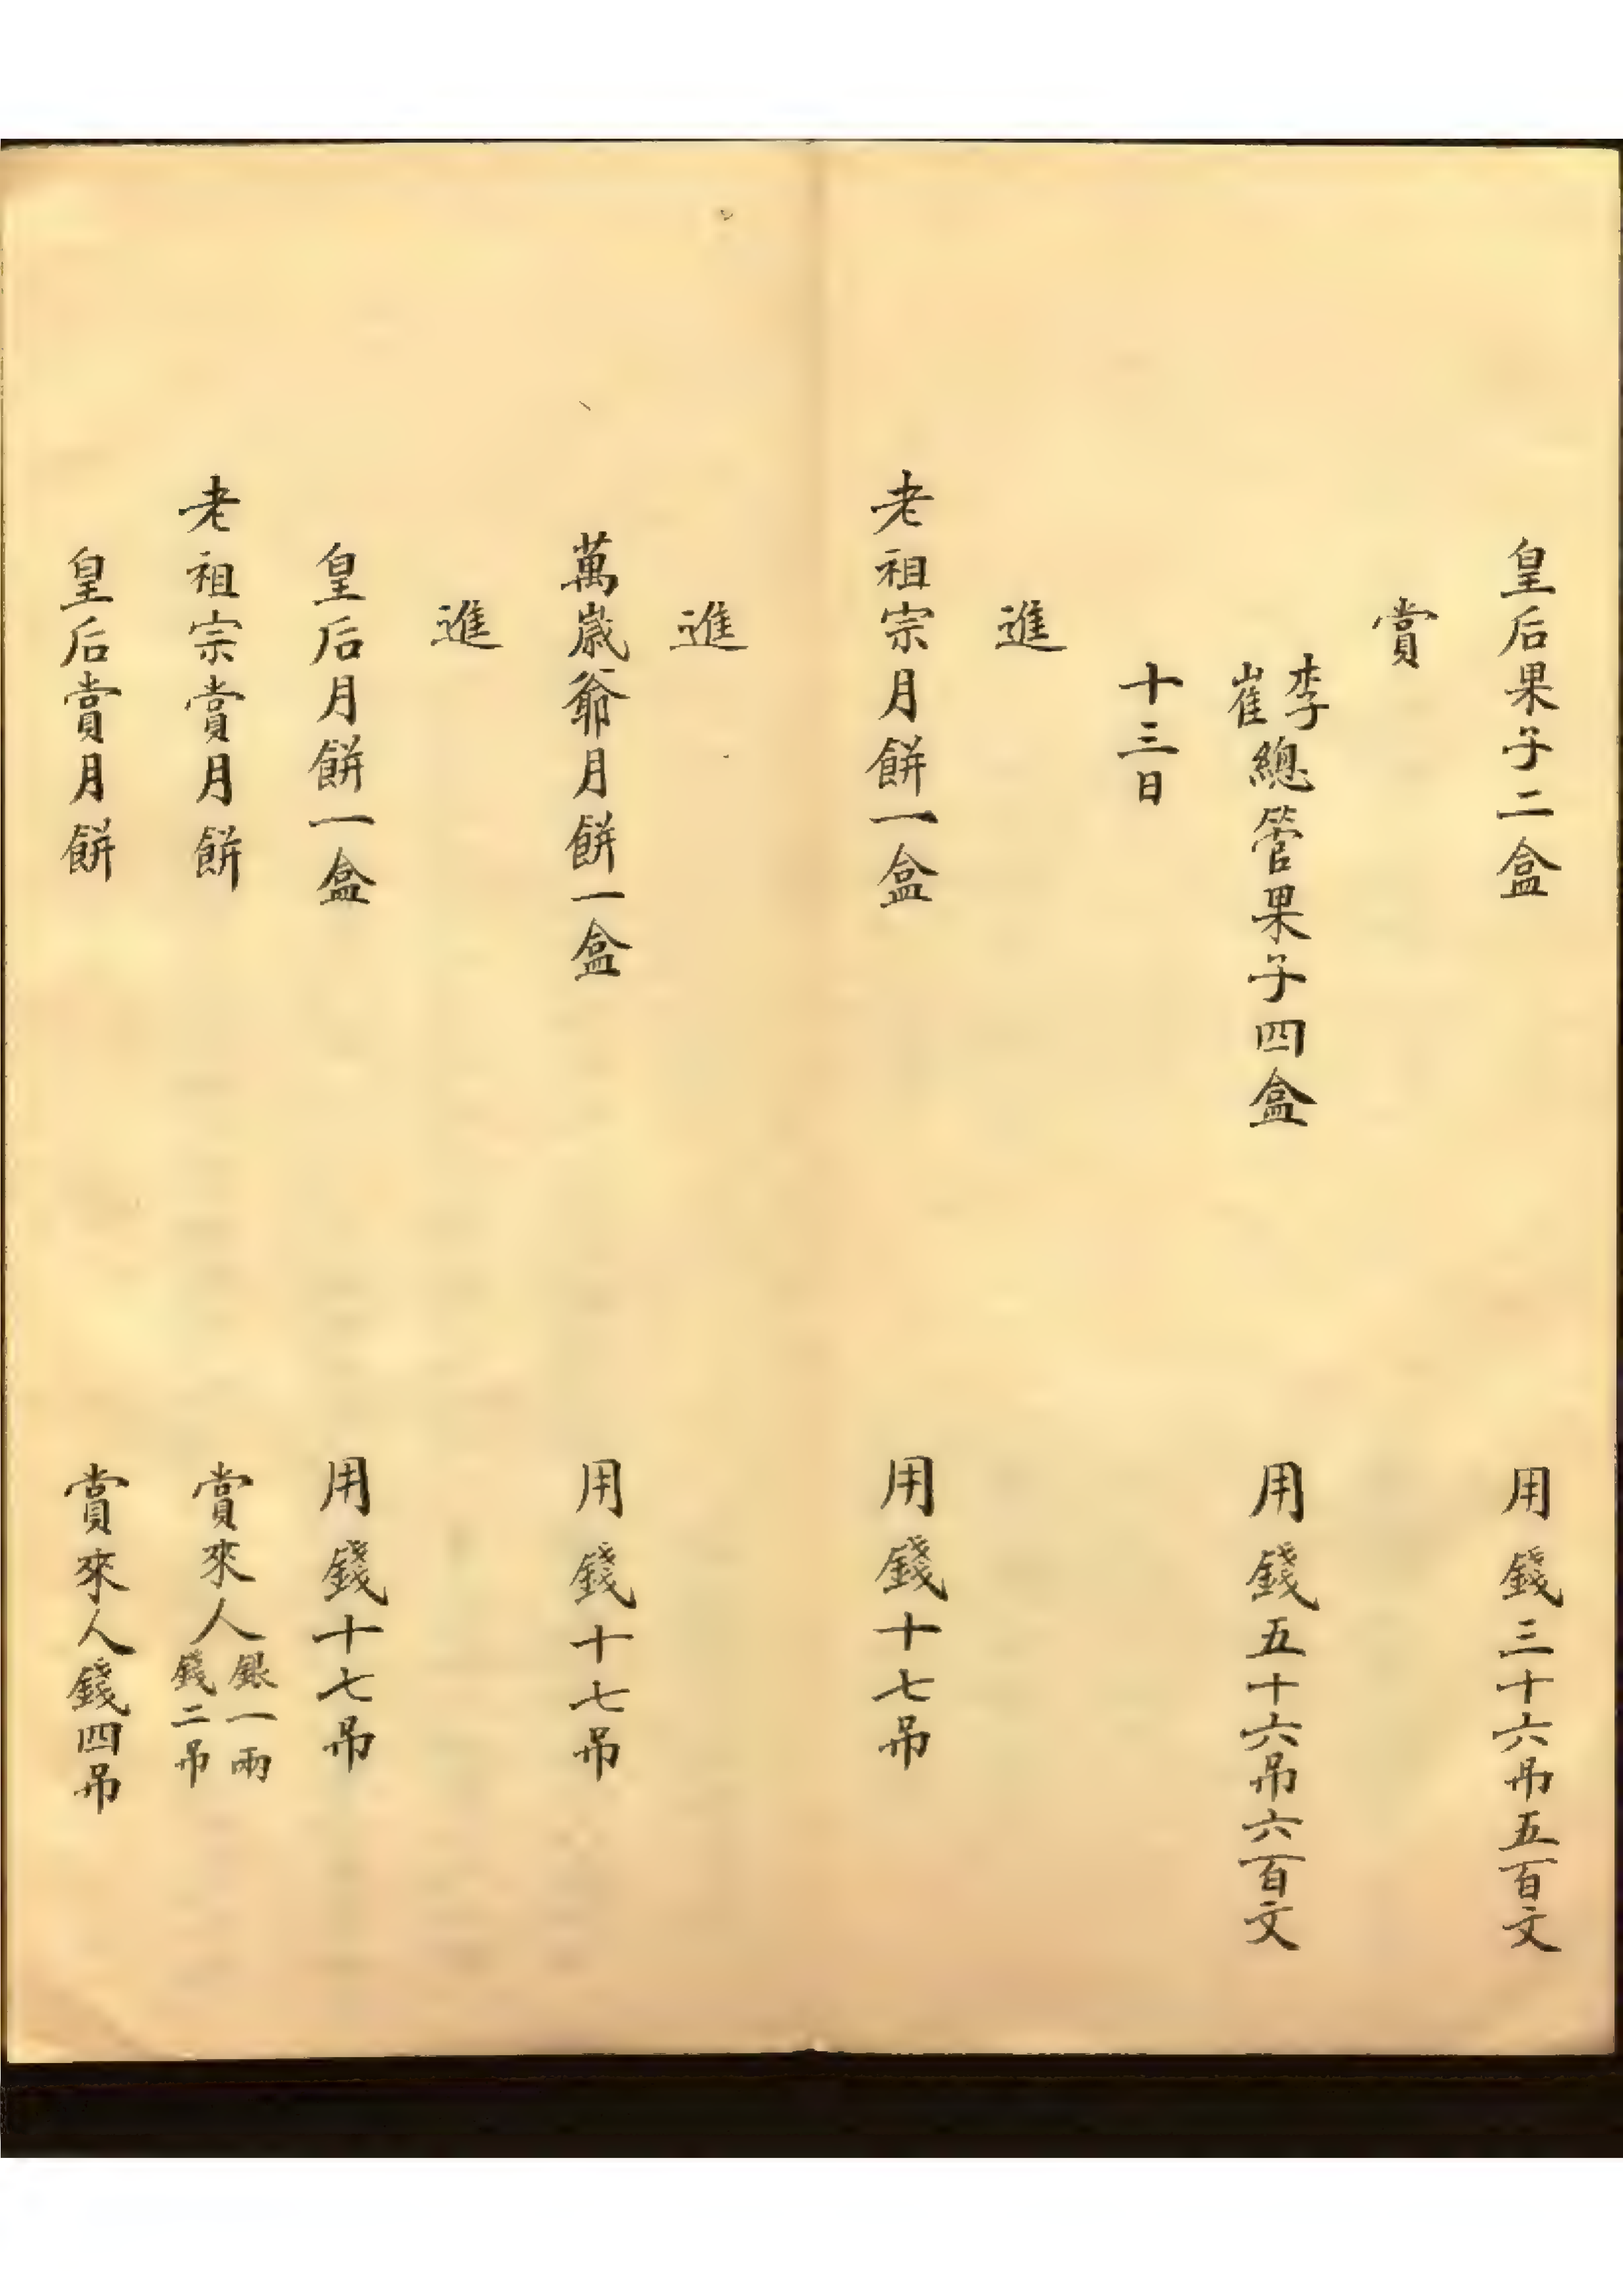 皇后果子二盒 用錢三十六吊五百文
賞
李崔總管果子四盒 用錢五十六吊六百文
十三日
進
老祖宗月餅一盒 用錢十七吊
進
萬歲爺月餅一盒 用錢十七吊
進
皇后月餅一盒 用錢十七吊
老祖宗賞月餅 賞來人銀一兩錢二吊
皇后賞月餅 賞來人錢四吊